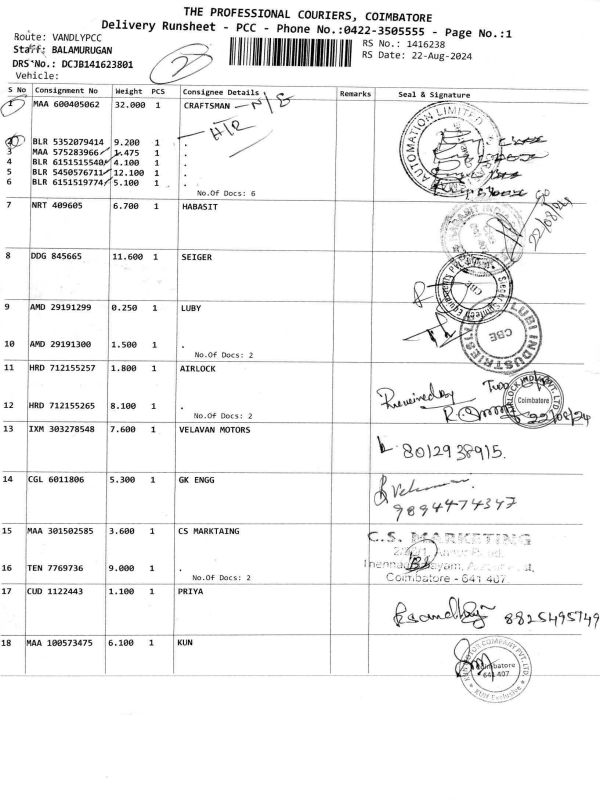 THE PROFESSIONAL COURIERS, COIMBATORE
Delivery Runsheet - PCC - Phone No.:0422-3505555 - Page No.:1
Route: VANDLYPCC
RS No.: 1416238
Staff: BALAMURUGAN
RS Date: 22-Aug-2024
DRS No.: DCJB141623801
Vehicle:
S No Consignment No Weight PCS Consignee Details Remarks Seal & Signature
1 MAA 600405062 32.000 1 CRAFTSMAN
2 BLR 5352079414 9.200 1 .
3 MAA 575283966 1.475 1 .
4 BLR 6151515540 4.100 1 .
5 BLR 5450576711 12.100 1 .
6 BLR 6151519774 5.100 1 .
No.Of Docs: 6
AUTOMATION LIMITED
7 NRT 409605 6.700 1 HABASIT
22/08/24
8 DDG 845665 11.600 1 SEIGER
9 AMD 29191299 0.250 1 LUBY
LUBI INDUSTRIES
CBE
10 AMD 29191300 1.500 1 .
No.Of Docs: 2
11 HRD 712155257 1.800 1 AIRLOCK
Received by
Coimbatore
22/08/24
12 HRD 712155265 8.100 1 .
No.Of Docs: 2
13 IXM 303278548 7.600 1 VELAVAN MOTORS
8012938915.
14 CGL 6011806 5.300 1 GK ENGG
9894474347
15 MAA 301502585 3.600 1 CS MARKTAING
C.S. MARKETING
16 TEN 7769736 9.000 1 .
No.Of Docs: 2
Coimbatore - 641 407.
17 CUD 1122443 1.100 1 PRIYA
8825495749
18 MAA 100573475 6.100 1 KUN
Coimbatore
641 407